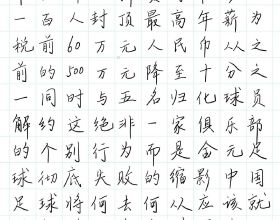 一百人封顶最高年薪为
税前60万元人民币从之
前的500万元降至十分之
一同时与五名归化球员
解约这绝非一家俱乐部
的个别行为而是金元足
球彻底失败的缩影中国
足球将何去何从应该就